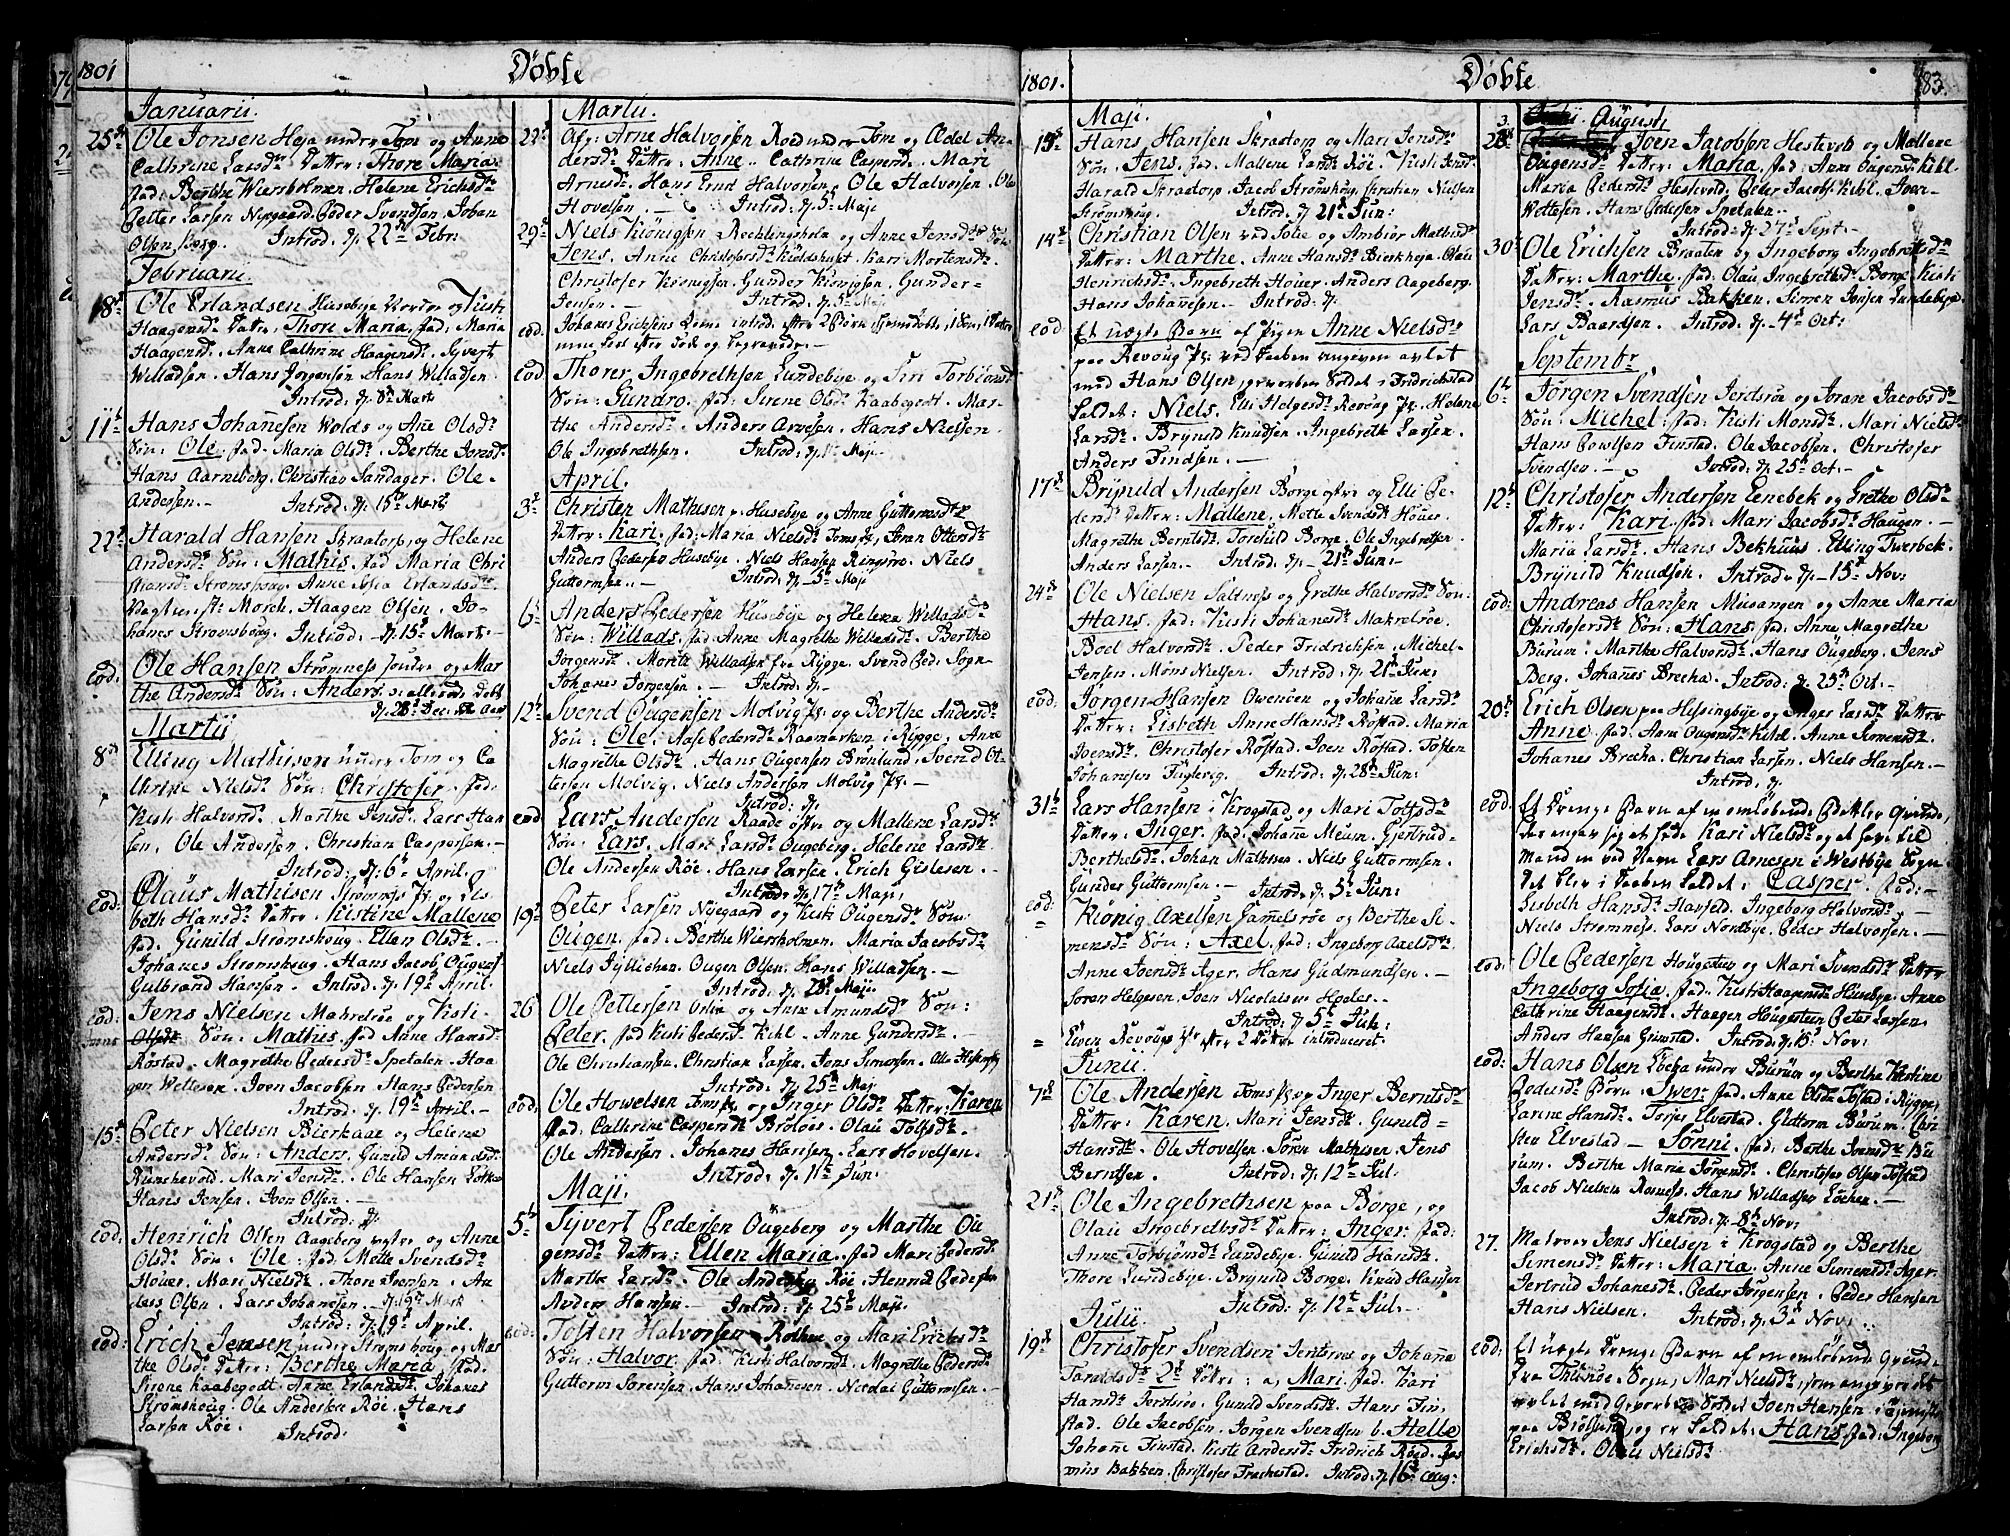 1801
Döbte
Januarii
25de Ole Jonsen Heja under Tom og Anne
Cathrine Larsdr Datter: Thore Maria
fad: Berthe Wiersholmen. Helene Erichsdr
Petter Larsen Nygaard. Peder Svendsen. Johan
Olsen Borg. Introd: d. 22de Febr:
Februarii
18de Ole Erlandsen Husebye og Kisti
Haagensdr Datter: Thore Maria, fad: Maria
Haagensdr. Anne Cathrine Haagensdr. Syvert
Willadsen. Hans Jörgensen Hans Willadsen
Introd: d. 8de Marti
11te Hans Johannesen Wolds og Ane Olsdr
Sön: Ole. fad. Maria Olsdr. Berthe Jonsdr
Hans Aarneberg. Christian Sandager. Ole
Andersen. Introd: d. 15de Marti
22de Harald Hansen Skraatorp, og Helene
Andersdr Sön: Mathis. fad Maria Chri
stiansdr Strömshoug. Anne Sofia Erlandsdr
Morch. Haagen Olsen. Jo-
hanes Strömshoug. Introd: d. 15de Mart.
eod: Ole Hansen Strömness söndre og Mar
the Andersdr Sön: Anders. allerede döbt
d. 28de Dec:
Martii
8de Elling Mathisen under Tom og Ca
thrine Nielsdr Sön: Christofer. fad:
Kisti Halvorsdr. Marthe Jensdr. Lars Han
sen. Ole Andersen. Christian Caspersen.
Introd: d. 6te April.
eod: Claus Mathisen Strömness og Lis
beth Hansdr Datter: Kistine Mallene
fad. Gunild Strömshoug. Ellen Olsdr.
Johanes Strömshoug. Hans Jacob Ougens
Gulbrand Hansen. Introd: d. 19de April.
eod: Jens Nielsen Makrelröe og Kisti
Sön: Mathis. fad Anne Hansdr
Röstad. Magrethe Pedersdr Spetalen. Haa
gen Wettesen. Joen Jacobsen Hans Pedersen
Introd: d. 19de April.
15de Peter Nielsen Bierkaae og Helene
Andersdr Sön: Anders. Gunild Amundsdr
Mari Jensdr. Ole Hansen
Hans Jensen. Joen Olsen.
Introd: d.
eod: Henrich Olsen Aageberg vestre og Anne
Olsdr Sön: Ole. fad. Mette Svendsdr
Höuer. Mari Nielsdr. Thore Svensen. An
ders Olsen. Lars Johannesen.
Introd: d. 19de April.
eod: Erich Jensen under Strömshoug og Mar
the Olsdr Datter: Berthe Maria, fad.
Sirene Kaabegodt. Anne Erlandsdr. Johanes
Strömshoug. Ole Andersen Röe. Hans
Larsen Röe. Introd:
Martii.
22de Afg: Arne Halvorsen Röed under Tom og Edel An
dersdr Datter: Anne. Cathrine Caspersdr. Mari
Arnesdr. Hans Halvorsen. Ole Halvorsen. Ole
Hovelsen. Introd: d. 5te Maji
29de Niels Kiönigsen Recklingsholm og Anne Jensdr Sön
Jens. Anne Christofersdr Kioldshuset. Kari Mortensdr
Christofer Kiönigsen. Gunder Kiönigsen. Gunder
Jensen. Introd: d. 5te Maji
eod: Johanes Ericksens Kone introd: efter 2 Börn hjemedöbte, 1 Sön, 1 Datter
eod. Thorer Ingebrethsen Lundebye og Siri Torbiönsdr
Sön: Gundro. fad: Sirene Olsdr Kaabegodt. Mar-
the Andersdr. Anders Arvesen. Hans Nielsen.
Ole Ingebrethsen. Introd: d. Maji
April.
3de Christen Mathisen Husebye og Anne Guttormsdr
Datter: Kari. fad: Maria Nielsdr Toms. Joran Ottersdr
Anders Pedersen Husebye. Niels Hansen Ringsröe. Niels
Guttormsen. Introd: d. 5te Maji
6te Anders Pedersen Husebye og Helene Willadsdr
Sön: Willads. fad: Anne Magrethe Willadsdr. Berthe
Jörgensdr. Moritz Willadsen fra Rygge. Svend Ped: Sogn
Johanes Jörgensen. Introd: d.
12te Svend Ougensen Molvig og Berthe Andersdr
Sön: Ole. Aase Pedersdr Raamarken i Rygge. Anne
Magrethe Olsdr. Hans Ougensen Brönlund. Svend Ot-
tersen Molvig. Niels Andersen Molvig
Introd: d.
eod Lars Andersen Raade östre og Mallene Larsdr
Sön: Lars. Mari Larsdr Ougeberg. Helene Larsdr.
Ole Andersen Röe. Hans Larsen. Erich Gislesen.
Introd: d. 17de Maji
19de Peter Larsen Nygaard og Kisti Ougensdr Sön:
Ougen. fad: Berthe Wiersholmen. Maria Jacobsdr
Niels Gyllichen. Ougen Olsen. Hans Willadsen.
Introd: d. 28de Maji
26 Ole Pettersen og Anne Amundsdr Sön:
Peter. fad Kisti Pedersdr Kihl. Anne Gundersdr.
Ole Christiansen. Christian Larsen. Jens Simensen. Ole
Introd: d. 25de Maji
eod: Ole Howelsen og Inger Olsdr Datter: Karen
fad: Cathrine Caspersdr Broloes. Olau Tolfsdr.
Ole Andersen. Johanes Hansen. Lars Hovelsen.
Introd: d. 11te Jun:
Maji.
5te Syvert Pedersen Ougeberg og Marthe Ou
gensdr Datter: Ellen Maria. fad Mari Pedersdr
Marthe Larsdr. Ole Andersen Röe. Henrich Pedersen
Anders Hansen. Introd: d. 25de Maji.
eod: Tosten Halvorsen Rolhue og Mari Erichsdr
Sön: Halvor. fad: Kisti Halvorsdr. Magrethe Pedersdr
Guttorm Sörensen. Hans Johanesen. Nicolai Guttormsen.
1801.
Döbte
183.
Maji.
Hans Hansen Skradorp og Mari Jensdr
Sön: Jens. fad. Mallene Larsdr Röe. Kisti Jensdr.
Harald Skradorp. Jacob Strömshoug. Christian Nielsen
Strömshoug. Introd: d. 21de Jun:
14de Christian Olsen ved Solie og Ambiör Mathisdr
Datter: Marthe. Anne Hansdr Bierkheja. Olau
Henrichsdr. Ingebreth Höuer. Anders Aageberg.
Hans Johansen. Introd: d.
eod Et uægte Barn af Pigen Anne Nielsdr
paa Revoug ved Daaben angiven avlet
med Hans Olsen, geworben Soldat i Fridrichstad
kaldet: Niels. Elli Helgesdr Revoug. Helene
Larsdr. Brynild Knudsen. Ingebreth Larsen.
Anders Findsen.
17de Brynild Andersen Borge östre og Elli Pe-
dersdr Datter: Mallene. Mette Svendsdr Höuer.
Magrethe Berntsdr. Torchild Borge. Ole Ingebretsen.
Anders Larsen. Introd: d. 21de Jun:
24de Ole Nielsen Saltness og Grethe Halvorsdr Sön:
Hans. fad: Kisti Johanesdr Makrelröe.
Boel Halvorsdr. Peder Fridrichsen. Michel
Jensen. Möns Nielsen. Introd: d. 21de Jun:
eod: Jörgen Hansen Owenöen og Johane Larsdr
Datter: Lisbeth Anne Hansdr Röstad. Maria
Joensdr. Christofer Röstad. Joen Röstad. Tosten
Johanesen Fuglevig. Introd: d. 28de Jun:
31te Lars Hansen i Krogstad og Mari Tolfsdr
Datter: Inger. fad: Johane Meum. Gjertrud
Berthelsdr. Johan Mathisen. Niels Guttormsen.
Gunder Guttormsen. Introd: d. 5te Jun:
eod: Kiönig Axelsen Gamelsröe og Berthe Si-
mensdr Sön: Axel. fad: Ingeborg Axelsdr.
Anne Joensdr Ager. Hans Gudmundsen.
Soren Helgesen. Joen Nicolaisen
Introd: d. 5te Jul:
Even Revougs efter 2 Döttre introduceret.
Junii.
7de Ole Andersen Toms og Inger Berntsdr
Datter: Karen. Mari Jensdr. Gunild
Hansdr. Ole Hovelsen. Sören Mathisen. Jens
Berntsen. Introd: d. 12te Jul:
21de Ole Ingebrethsen paa Borge, og
Olau Ingebrethsdr Datter: Inger. fad:
Anne Torbiönsdr Lundebye. Gunild Hansdr.
Thore Lundebye. Brynild Borge. Knud Hansen
Introd: d. 12te Jul.
Julii.
19de Christofer Svendsen Jenteröe og Johane
Taraldsdr 2de Döttre: a, Mari. fad. Kari
Hansdr Jerdsröe. Gunild Svendsdr. Hans Fin
stad. Ole Jacobsen. Jörgen Svendsen b. Helle
Johane Finstad. Kisti Andersdr Fridrich Röed. Ras
mus Bakken. Christofer Trachestad. Introd: d. 16de Aug:
3. Augusti
23de Joen Jacobsen Hestevold og Mallene
Ougensdr Datter: Maria. fad: Anne Ougensdr Kihl.
Maria Pedersdr Hestevold. Peter Jacobs: Kihl. Joen
Wettesen. Hans Pedersen Spetalen.
Introd: d. 27de Sept.
30de Ole Erichsen Braaten og Ingeborg Ingebrethsdr
Datter: Marthe. fad: Olau Ingebrethsdr Borge. Kisti
Jensdr. Rasmus Bakken. Simen Jonsen Lundebye
Lars Baardsen. Introd: d. 4de Oct:
Septembr
6te Jörgen Svendsen Jerdsröe og Joran Jacobsdr
Sön: Michel. fad: Kisti Monsdr. Mari Nielsdr
Hans Powlsen Finstad. Ole Jacobsen. Christofer
Svendsen. Introd: d. 25de Oct.
12te Christofer Andersen Eenebek og Grethe Olsdr
Datter: Kari. fad: Mari Jacobsdr Haugen.
Maria Larsdr. Hans Bekhuus. Elling Twerbek.
Brynild Knudsen. Introd: d. 15de Nov:
eod: Andreas Hansen Musangen og Anne Maria
Christofersdr Sön: Hans. fad: Anne Magrethe
Burum. Marthe Halvorsdr. Hans Ougeberg. Jens
Berg. Johanes Brecha. Introd: d. 25de Oct.
20de Erich Olsen paa Helsingbye og Inger Larsdr Datter
Anne. fad: Anne Ougensdr Kihl. Anne Simensdr.
Johanes Brecha. Christian Larsen. Niels Hansen.
Introd: d.
eod: Et Drenge Barn af en omlöbende Betler Qvinde,
der angav sig at hede Kari Nielsdr og at have til
Mand en ved Navn Lars Arnesen i Westbye Sogn.
Det blev i Daaben kaldet: Casper. fad:
Lisbeth Hansdr Hasfeld. Ingeborg Halvorsdr.
Niels Strömness. Lars Nordbye. Peder Halvorsen.
eod: Ole Pedersen Hougeteen og Mari Svendsdr Datter
Ingeborg Sofia. fad: Kisti Haagensdr Husebye. Anne
Cathrine Haagensdr. Haagen Hougesteen Peter Larsen.
Anders Hansen Grimstad. Introd: d. 15de Nov:
eod: Hans Olsen Löcka under Burum og Berthe Kistine
Pedersdr Börn: Iwer. fad. Anne Olsdr Tofstad i Rygge.
Karine Hansdr. Torjes Elvestad. Guttorm Burum. Chri
sten Elvestad — Jönni. fad: Berthe Svensdr Bu
rum. Berthe Maria Jörgensdr. Christofer Olsen Tofstad
Jacob Nielsen Rosness. Hans Willadsen Löcken.
Introd: d. 8de Nov:
27. Matros Jens Nielsen i Krogstad og Berthe
Simensdr Datter: Maria. Anne Simensdr Ager.
Jertrud Johanesdr. Peder Jörgensen. Peder Hansen
Hans Nielsen. Introd: d. 3de Nov:
eod: Et uægte Drenge Barn af en omlöbende Qvinde
fra Thönöe Sogn, Mari Nielsdr, som angiver det
avlet med Gevorben Soldat Joen Hansen
paa og er kaldet: Hans. fad: Ingeborg
Erichsdr. Olau Nielsdr